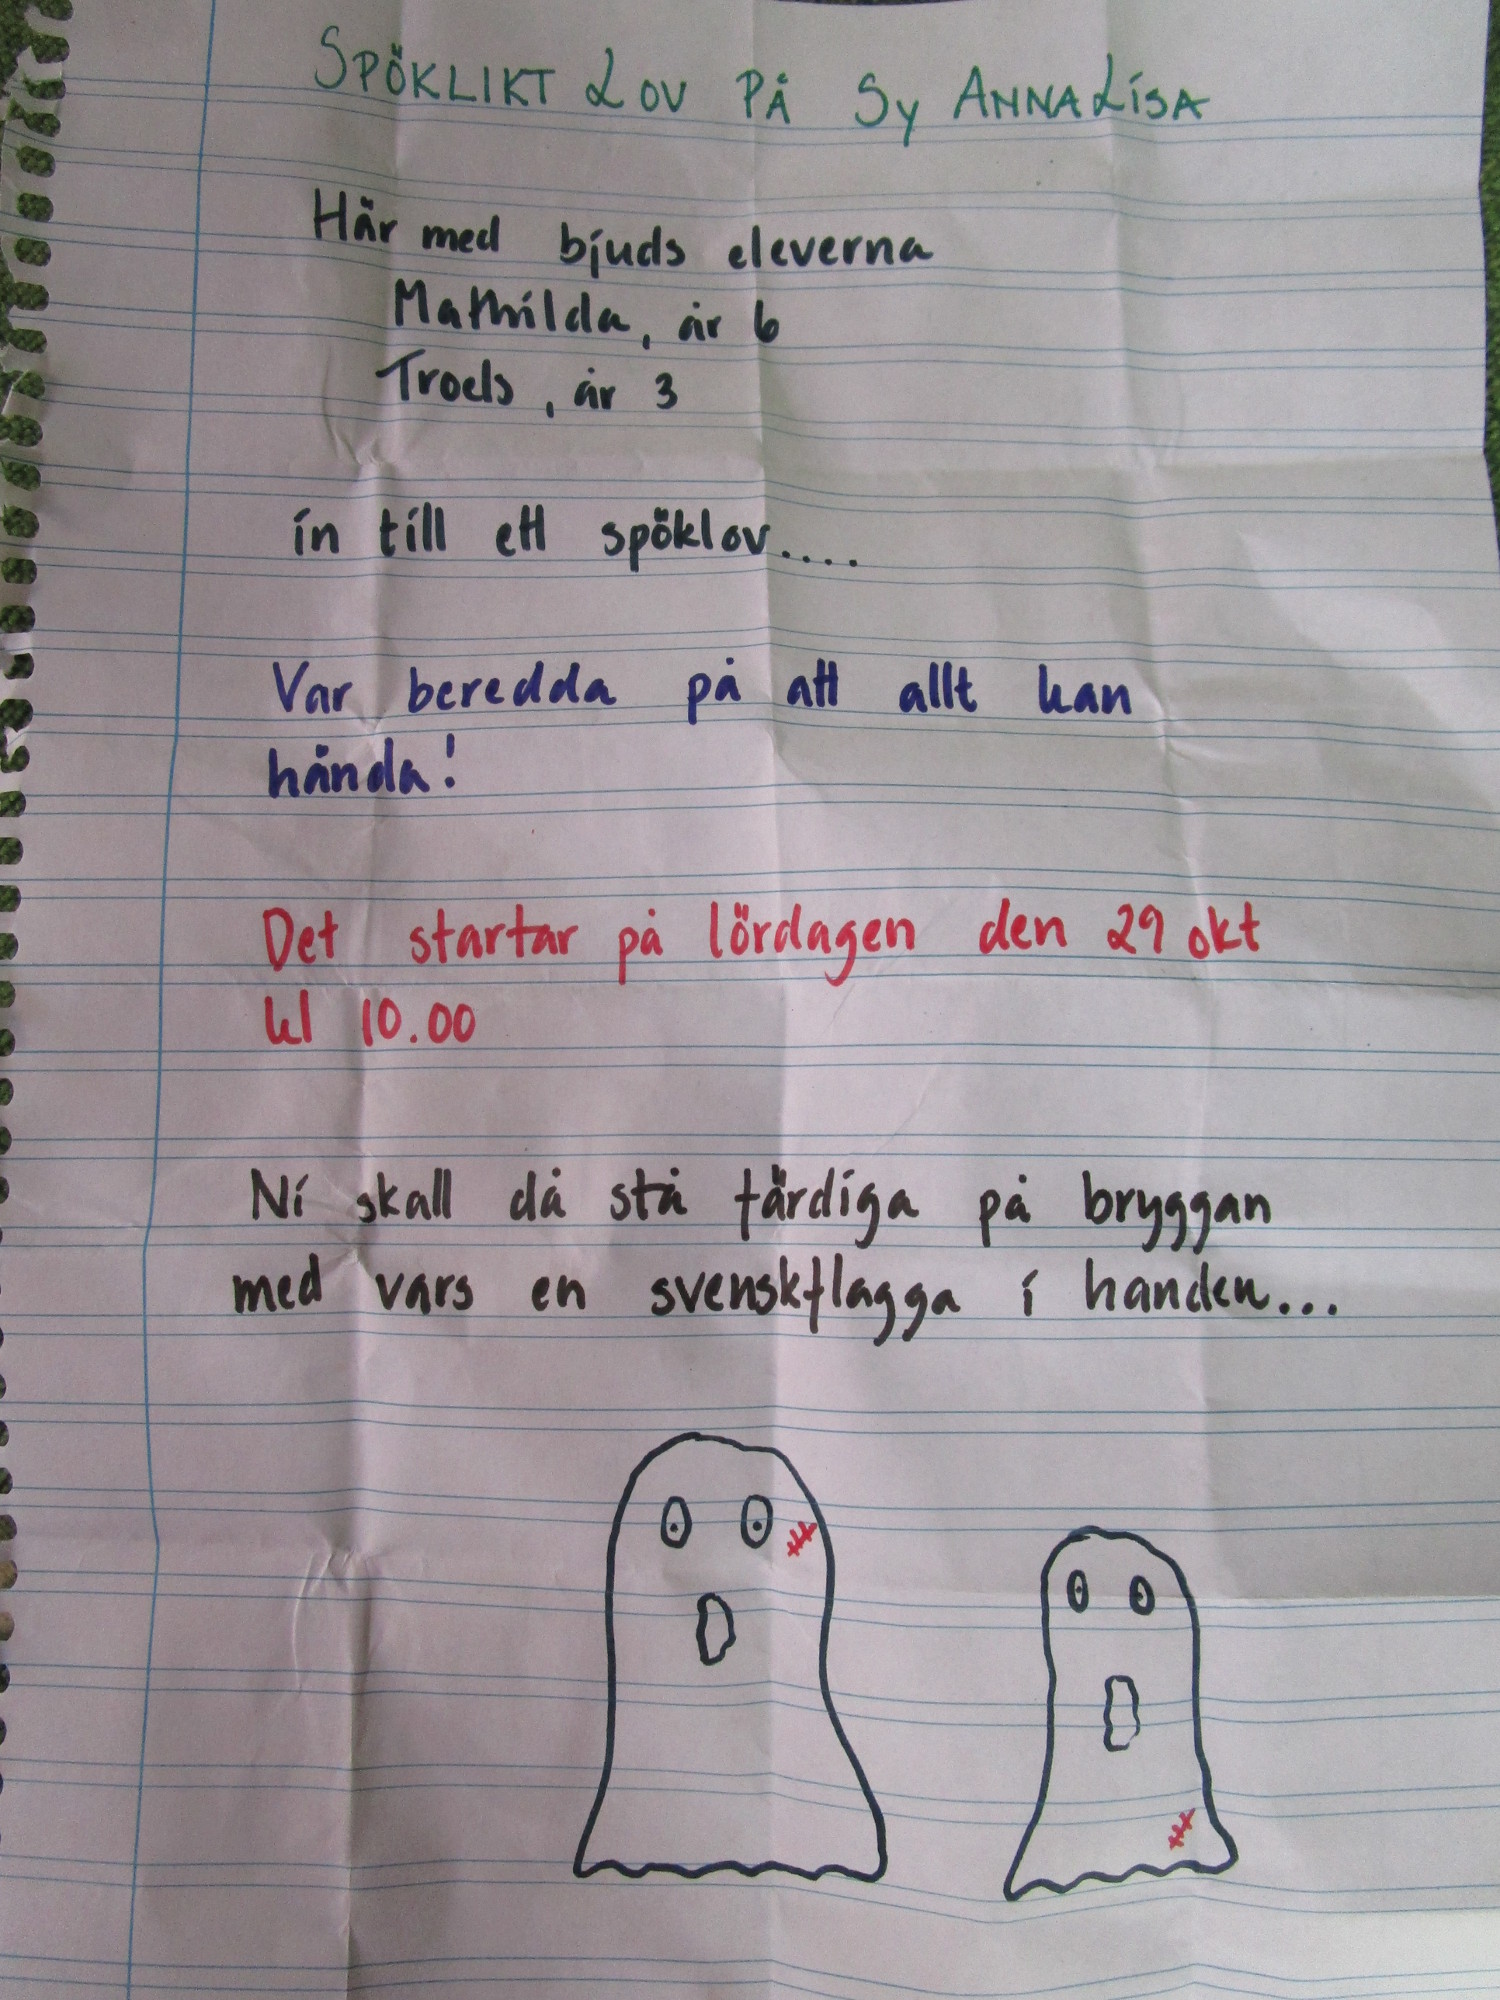 SPÖKLIKT LOV PÅ Sy ANNALISA
Här med bjuds eleverna
Mathilda, år 6
Troels, år 3
in till ett spöklov....
Var beredda på att allt kan
hända!
Det startar på lördagen den 29 okt
kl 10.00
Ni skall då stå färdiga på bryggan
med vars en svenskflagga i handen...